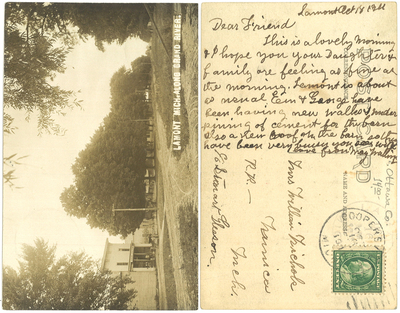 LAMONT MICH. ALONG GRAND RIVER.
Lamont Oct 18 1911
Dear Friend
This is a lovely morning
& I hope you your Daughter &
family are feeling as fine as
the morning. Lamont is about
as usual Cem & George have
been having new walls &
pinning of cement for the barn
also a new roof on the barn so they
have been very busy you see
Love from
Mrs William Nichols
Tamsca
Mich.
R.R.
℅ Stewart Gleason.
Ottawa Co
COOPERS